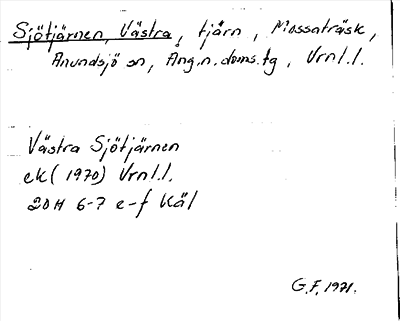 Sjötjärnen, Västra, tjärn, Mossaträsk,
Anundsjö sn, Ång.n.doms.tg, Vrnl.l.
Västra Sjötjärnen
ek (1970) Vrnl.l.
20H 6-7 e-f Käl
G.F. 1971.